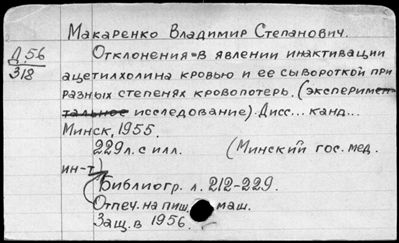 Макаренко Владимир Степанович.
Д.56
318
Отклонения в явлении инактивации
ацетилхолина кровью и ее сывороткой при
разных степенях кровопотерь. (эксперимен-
тальное исследование). Дисс... канд...
Минск, 1955.
229 л. с илл. (Минский гос. мед.
ин-т)
Библиогр. л. 212-229.
Отпеч. на пиш. маш.
Защ. в 1956.